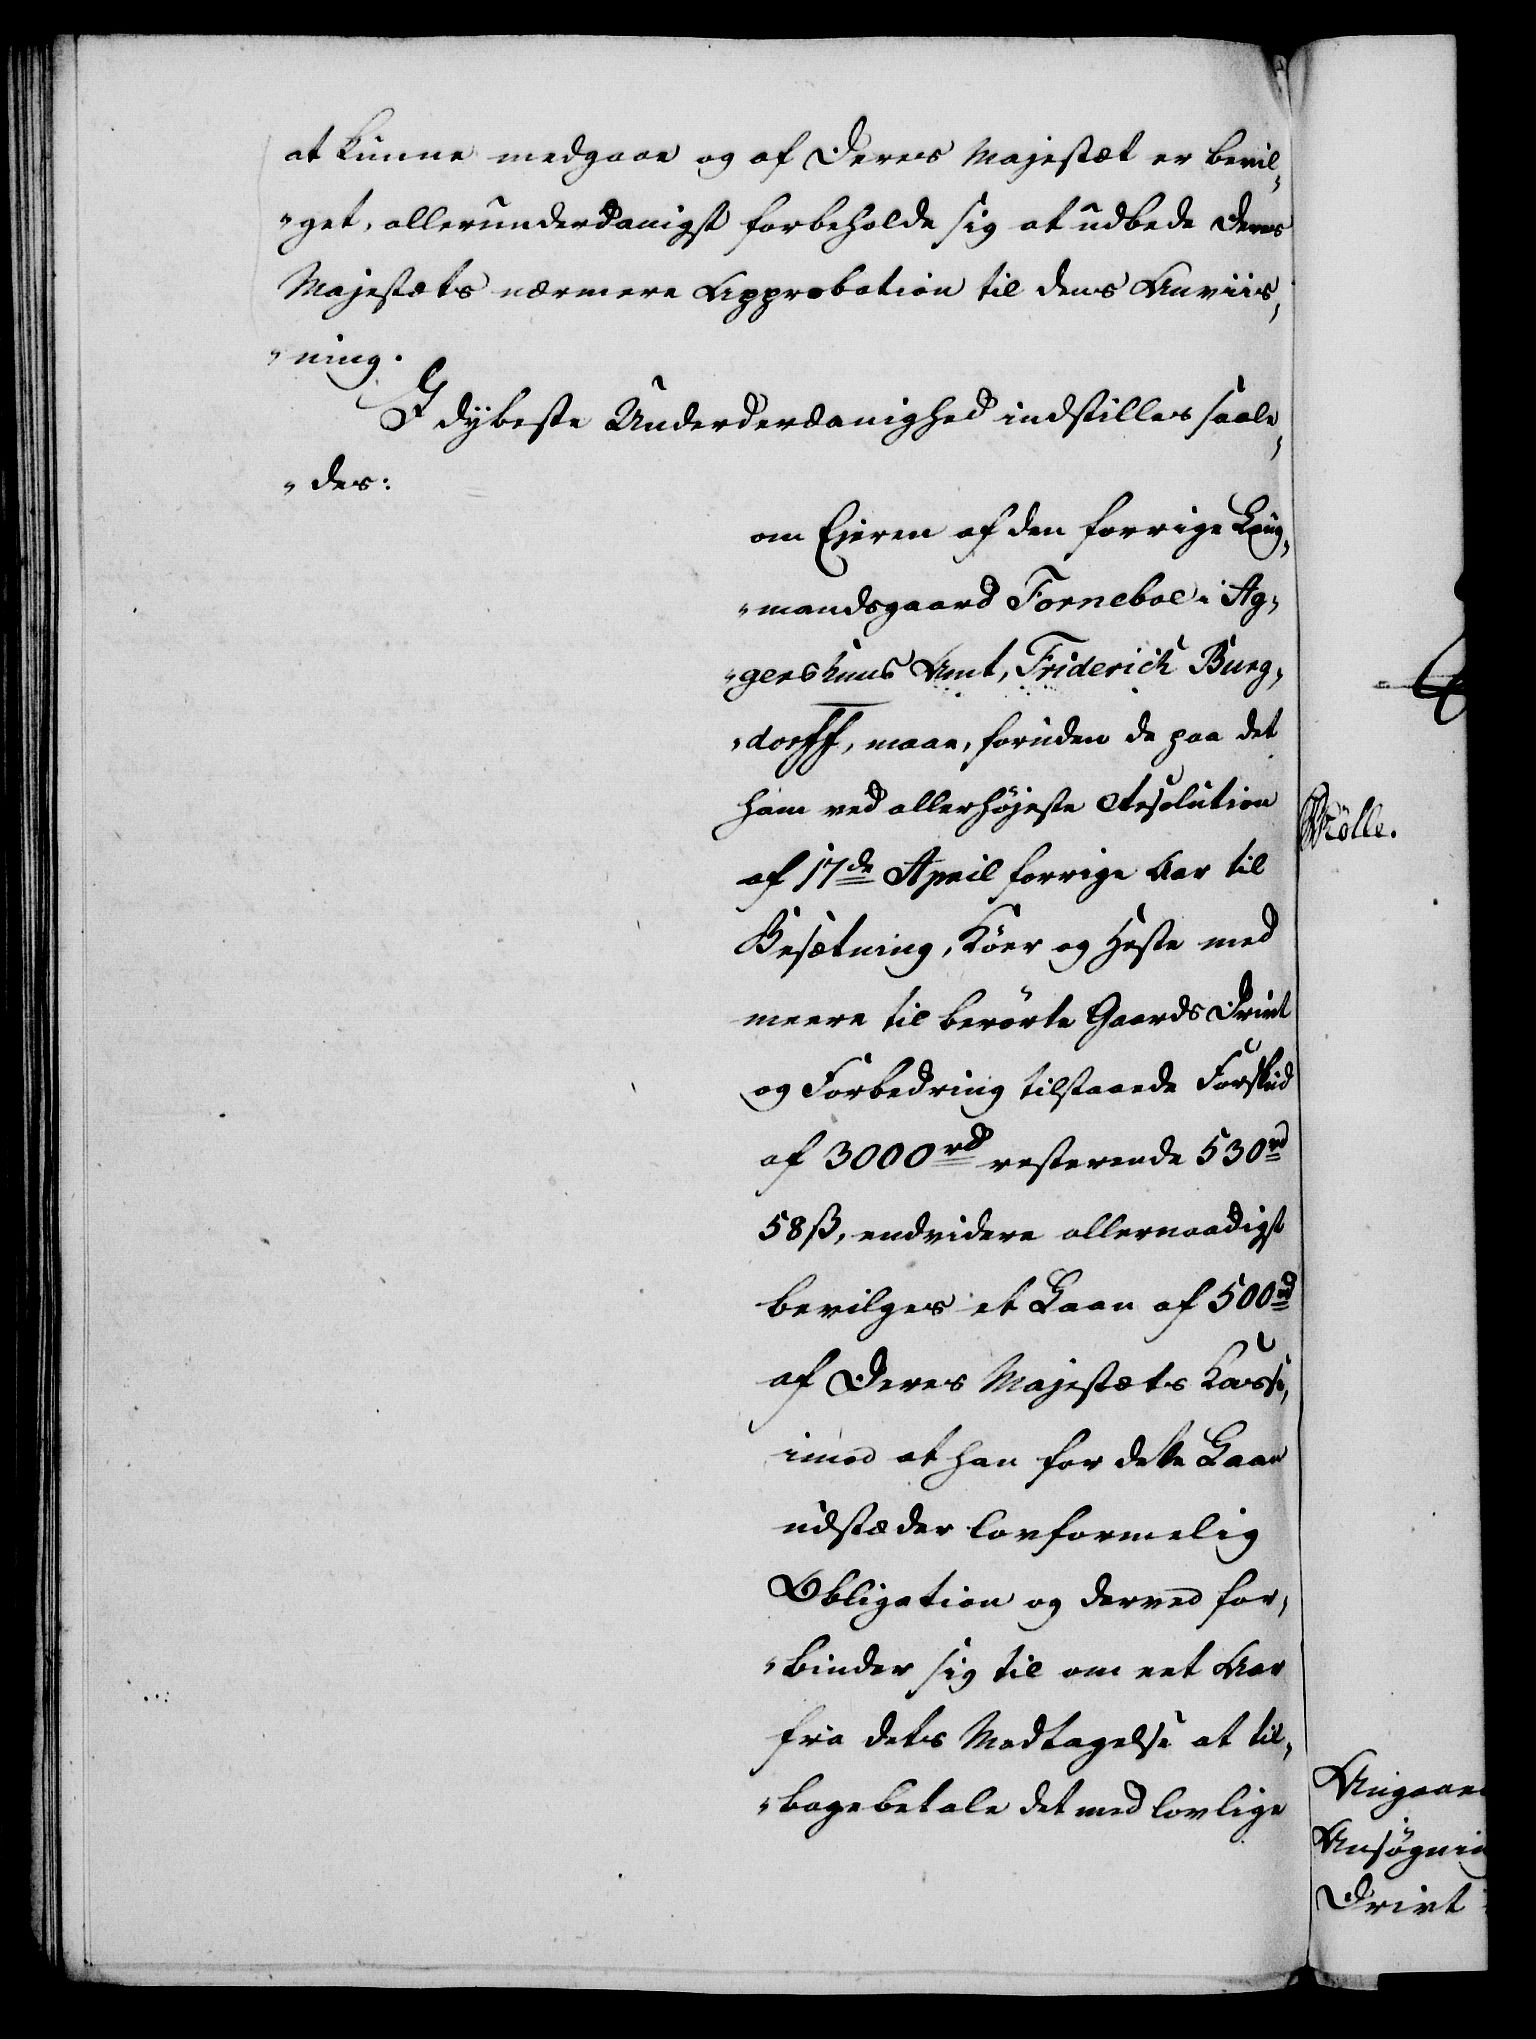 at kunne medgaae og af Deres Majestæt er bevil„
„get, allerunderdanigst forbeholde sig at udbede Deres
Majestæts nærmere Approbation til dens Anviis„
„ning.
I dybeste Underderdanighed indstilles saale„
„des:
om Ejeren af den forrige Laug„
„mandsgaard Forneboe i Ag„
„gershuus Amt, Friderich Burg„
„dorff, maae, foruden de paa det
ham ved allerhøjeste Resolution
af 17de April forrige Aar til
Besætning, Köer og Heste med
meere til berørte Gaards Drivt
og Forbedring tilstaaede Forskud
af 3000rd resterende 530rd
58ß, endvidere allernaadigst
bevilges et Laan af 500rd
af Deres Majestæts Kasse,
imod at han for dette Laan
udstæder lovformelig
Obligation og derved for„
„binder sig til om eet Aar
fra dets Modtagelse at til„
„bagebetale det med lovlige
Mölle.
Angaae
Ansøgnin
Drivt